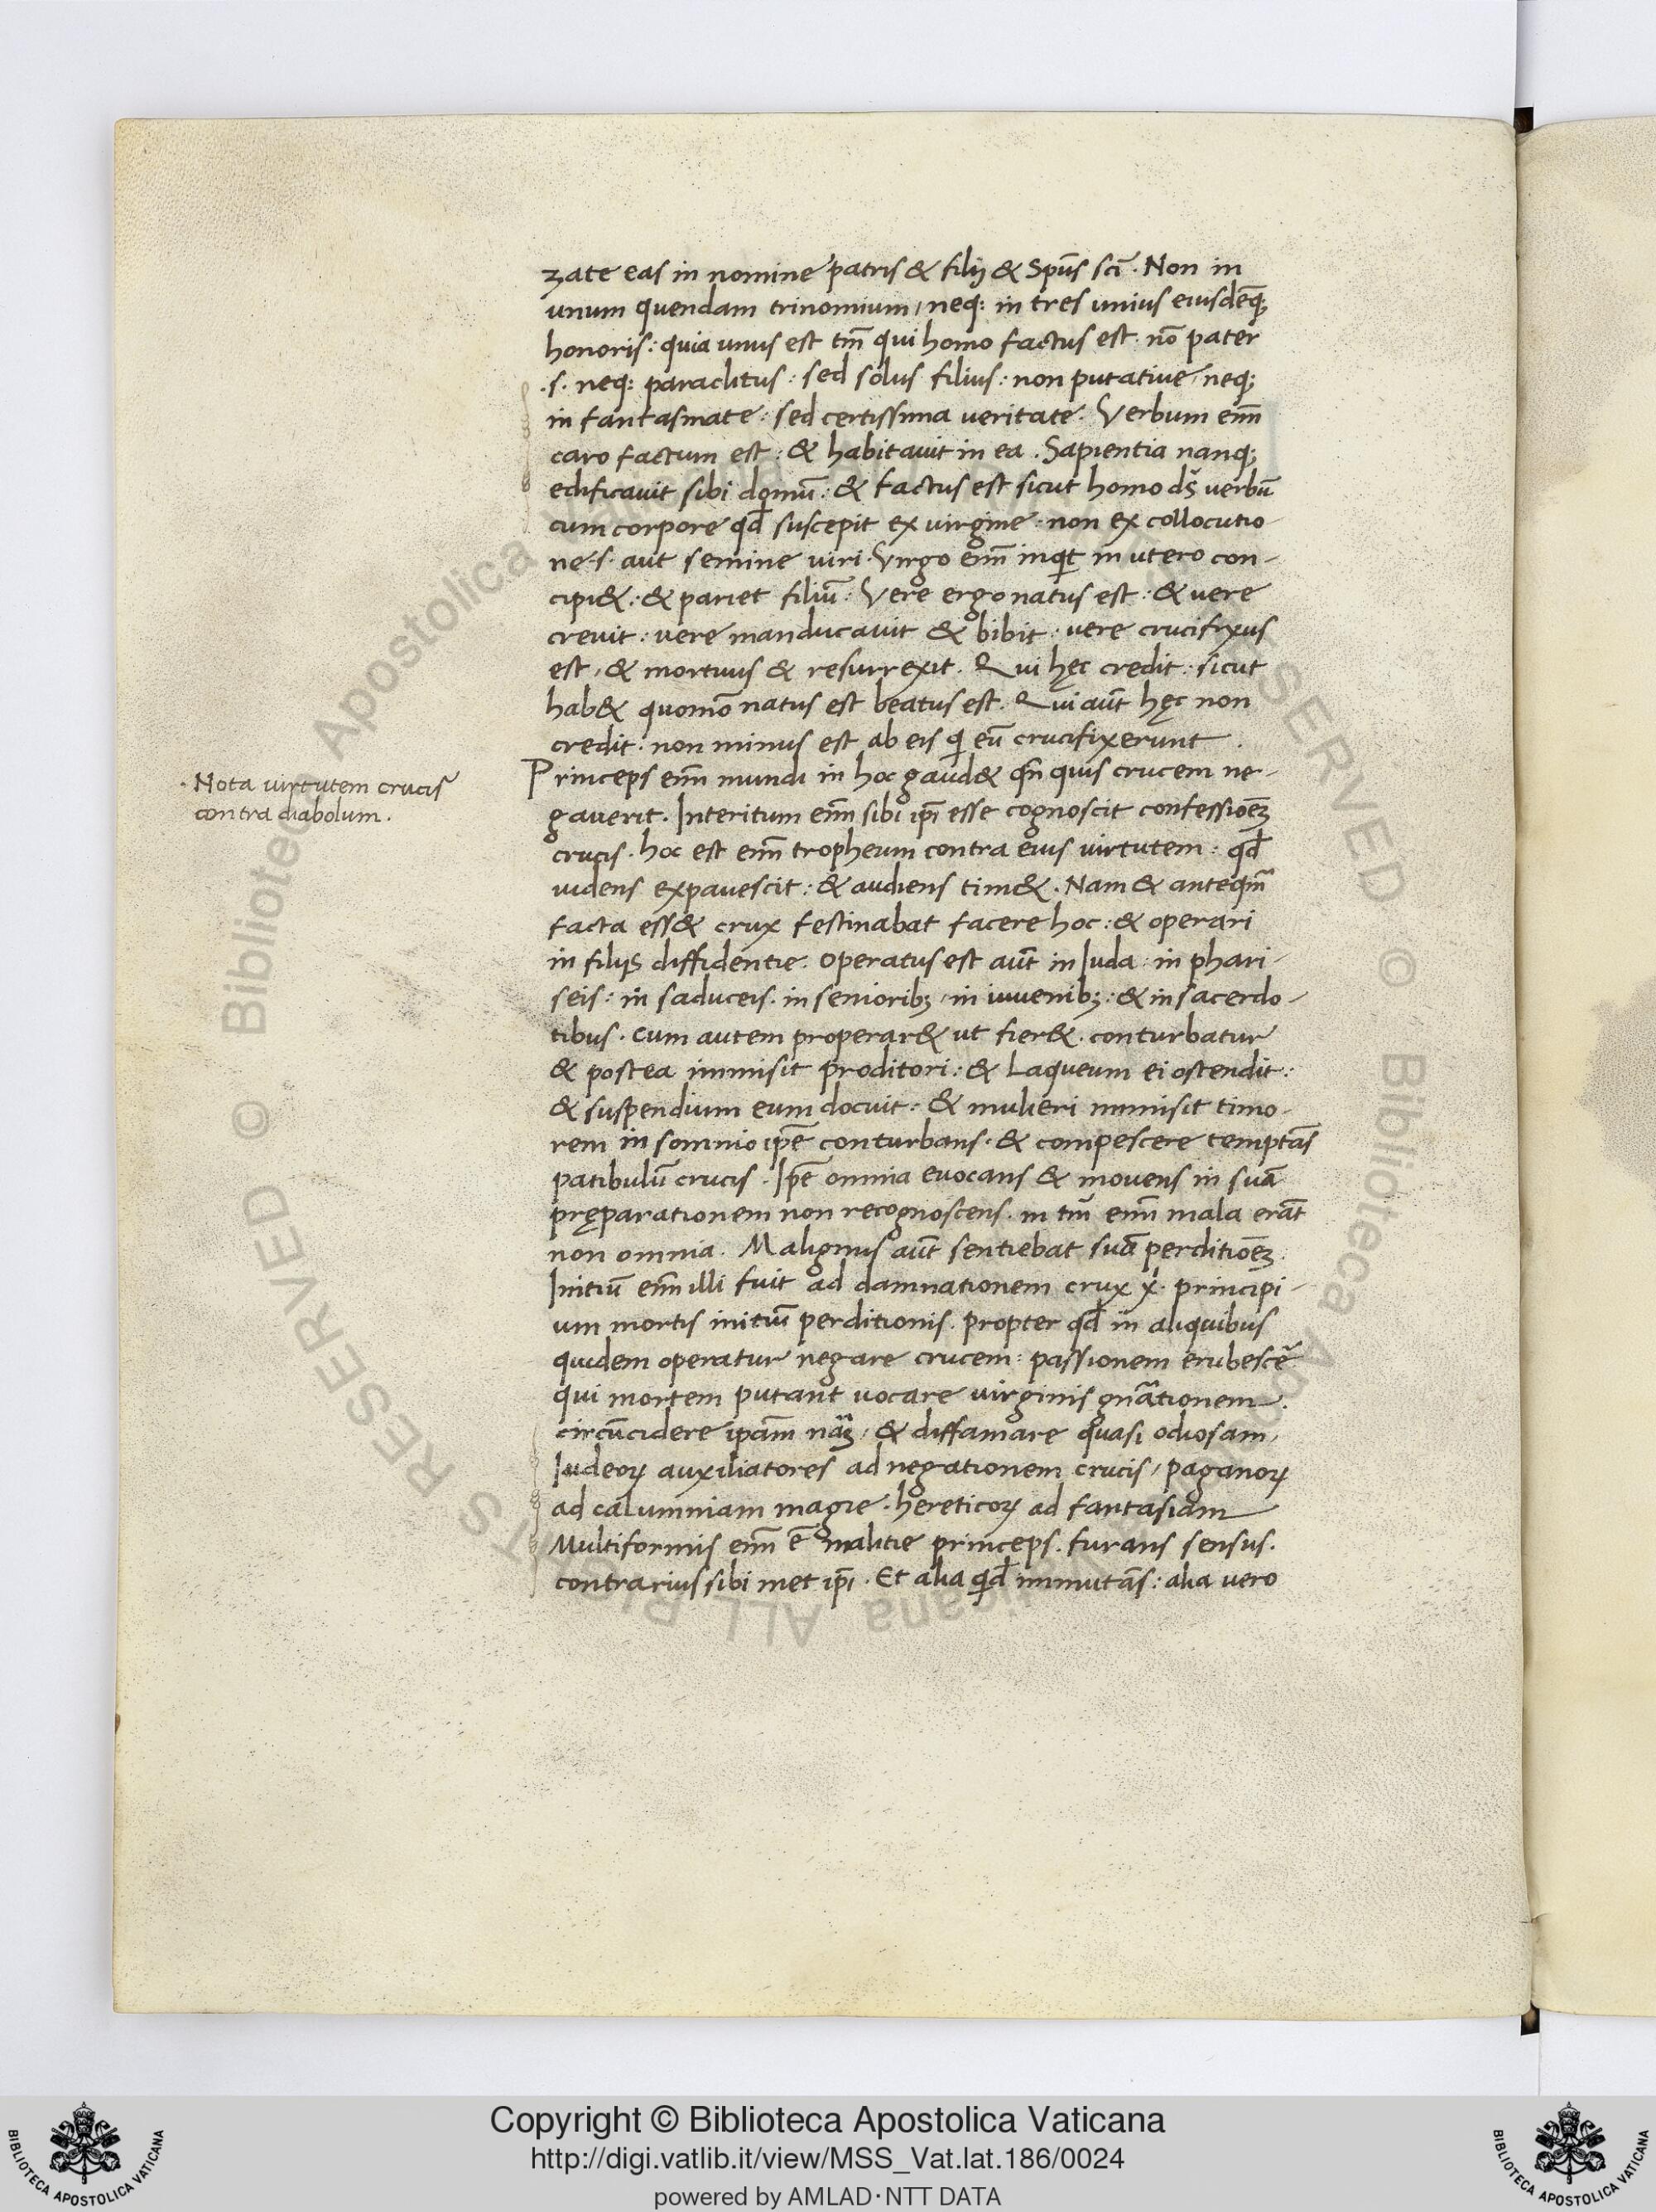 zate eas in nomine patris & filij & Spūs scī. Non in
unum quendam trinomium, neq; in tres unius eiusdēq;
honoris: quia unus est tm̄ qui homo factus est. nō pater
.s. neq; paraclitus: sed solus filius: non putative, neq;
in fantasmate: sed certissima veritate. Verbum enī
caro factum est: & habitavit in ea. Sapientia nanq;
edificavit sibi domū: & factus est sicut homo ds̄ verbū
cum corpore qđ suscepit ex virgine: non ex collocutio-
ne .s. aut semine viri. Virgo enī inqt in utero con-
cipi&: & pariet filiū: Vere ergo natus est: & vere
crevit: vere manducavit & bibit: vere crucifixus
est, & mortuus & resurrexit. Qui hęc credit: sicut
hab& quomō natus est beatus est. Qui aūt hęc non
credit: non minus est ab eis q̄ eū crucifixerunt.
· Nota virtutem crucis
contra diabolum.
Princeps enī mundi in hoc gaud& qn̄ quis crucem ne-
gaverit. Interitum enī sibi ip̄i esse cognoscit confessiōēz
crucis. hoc est enī tropheum contra eius virtutem: qđ
videns expavescit: & audiens tim&. Nam & anteqm̄
facta ess& crux festinabat facere hoc: & operari
in filijs diffidentie. Operatus est aūt in Iuda: in phari-
seis: in saduceis. in seniorib;, in iuvenib;: & in sacerdo-
tibus. Cum autem properar& ut fier&. conturbatur
& postea immisit proditori: & Laqueum ei ostendit:
& suspendium eum docuit: & mulieri immisit timo-
rem in somnio ip̄e conturbans. & compescere temptās
patibulū crucis. Ip̄e omnia evocans & movens in suā
pręparationem non recognoscens. in tm̄ enī mala erāt
non omnia. Malignus aūt sentiebat suā perditiōēz.
Initiū enī illi fuit ad damnationem crux x̄i. principi-
um mortis initiū perditionis. propter qđ in aliquibus
quidem operatur negare crucem: passionem erubescē
qui mortem putant vocare virginis gnātionem.
circūcidere ipām nāz, & diffamare quasi odiosam,
Iudeoꝝ auxiliatores ad negationem crucis, paganoꝝ
ad calumniam magie. hereticoꝝ ad fantasiam
Multiformis enī ē malitie princeps. furans sensus.
contrarius sibi met ip̄i. Et alia qđ immutās: alia vero
Copyright © Biblioteca Apostolica Vaticana
http://digi.vatlib.it/view/MSS_Vat.lat.186/0024
powered by AMLAD·NTT DATA
BIBLIOTECA APOSTOLICA VATICANA
BIBLIOTECA APOSTOLICA VATICANA